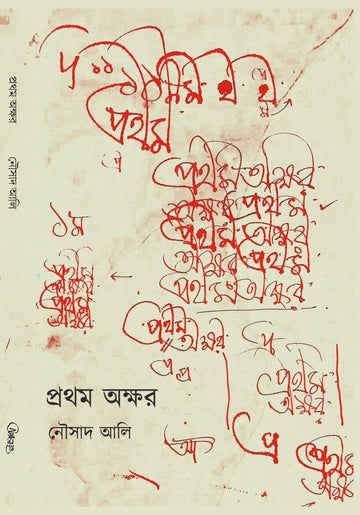 প্রথম
প্র
প্রথম অক্ষর
অক্ষর প্রথম
প্রথম অক্ষর
অক্ষর প্রথম
প্রথম অক্ষর
১ম
প্রথম
অক্ষর
প্রথম
অক্ষর
প্রথম
অক্ষর
প্র
প্র প্র
প্রথম
অক্ষর
প্রথম অক্ষর
নৌসাদ আলি
অ
প্র
প্রথম
অক্ষর
প্রথম অক্ষর
নৌসাদ আলি